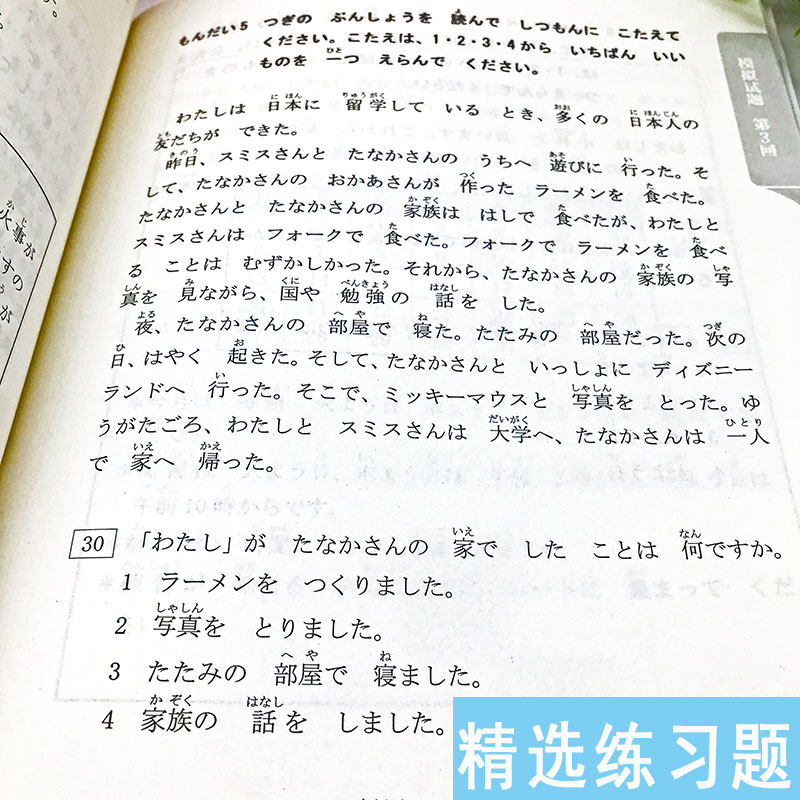 もんだい5 つぎの ぶんしょうを 読んで しつもんに こたえて
ください。こたえは、1・2・3・4から いちばん いい
ものを 一つ えらんで ください。
模拟试题 第3回
わたしは 日本に 留学して いる とき、多くの 日本人の
友だちが できた。
昨日、スミスさんと たなかさんの うちへ 遊びに 行った。そ
して、たなかさんの おかあさんが 作った ラーメンを 食べた。
たなかさんと たなかさんの 家族は はしで 食べたが、わたしと
スミスさんは フォークで 食べた。フォークで ラーメンを 食べ
る ことは むずかしかった。それから、たなかさんの 家族の 写
真を 見ながら、国や 勉強の 話を した。
夜、たなかさんの 部屋で 寝た。たたみの 部屋だった。次の
日、はやく 起きた。そして、たなかさんと いっしょに ディズニー
ランドへ 行った。そこで、ミッキーマウスと 写真を とった。ゆ
うがたごろ、わたしと スミスさんは 大学へ、たなかさんは 一人
で 家へ 帰った。
30 「わたし」が たなかさんの 家で した ことは 何ですか。
1 ラーメンを つくりました。
2 写真を とりました。
3 たたみの 部屋で 寝ました。
4 家族の 話を しました。
精选练习题